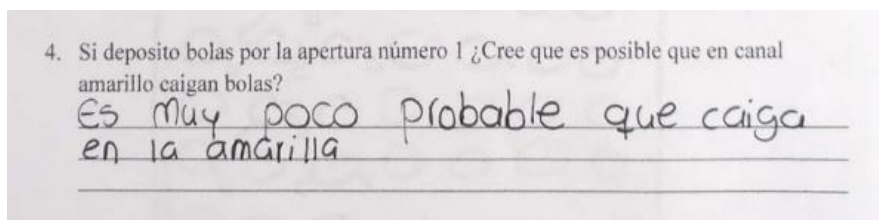 4. Si deposito bolas por la apertura número 1 ¿Cree que es posible que en canal
amarillo caigan bolas?
Es muy poco probable que caiga
en la amarilla